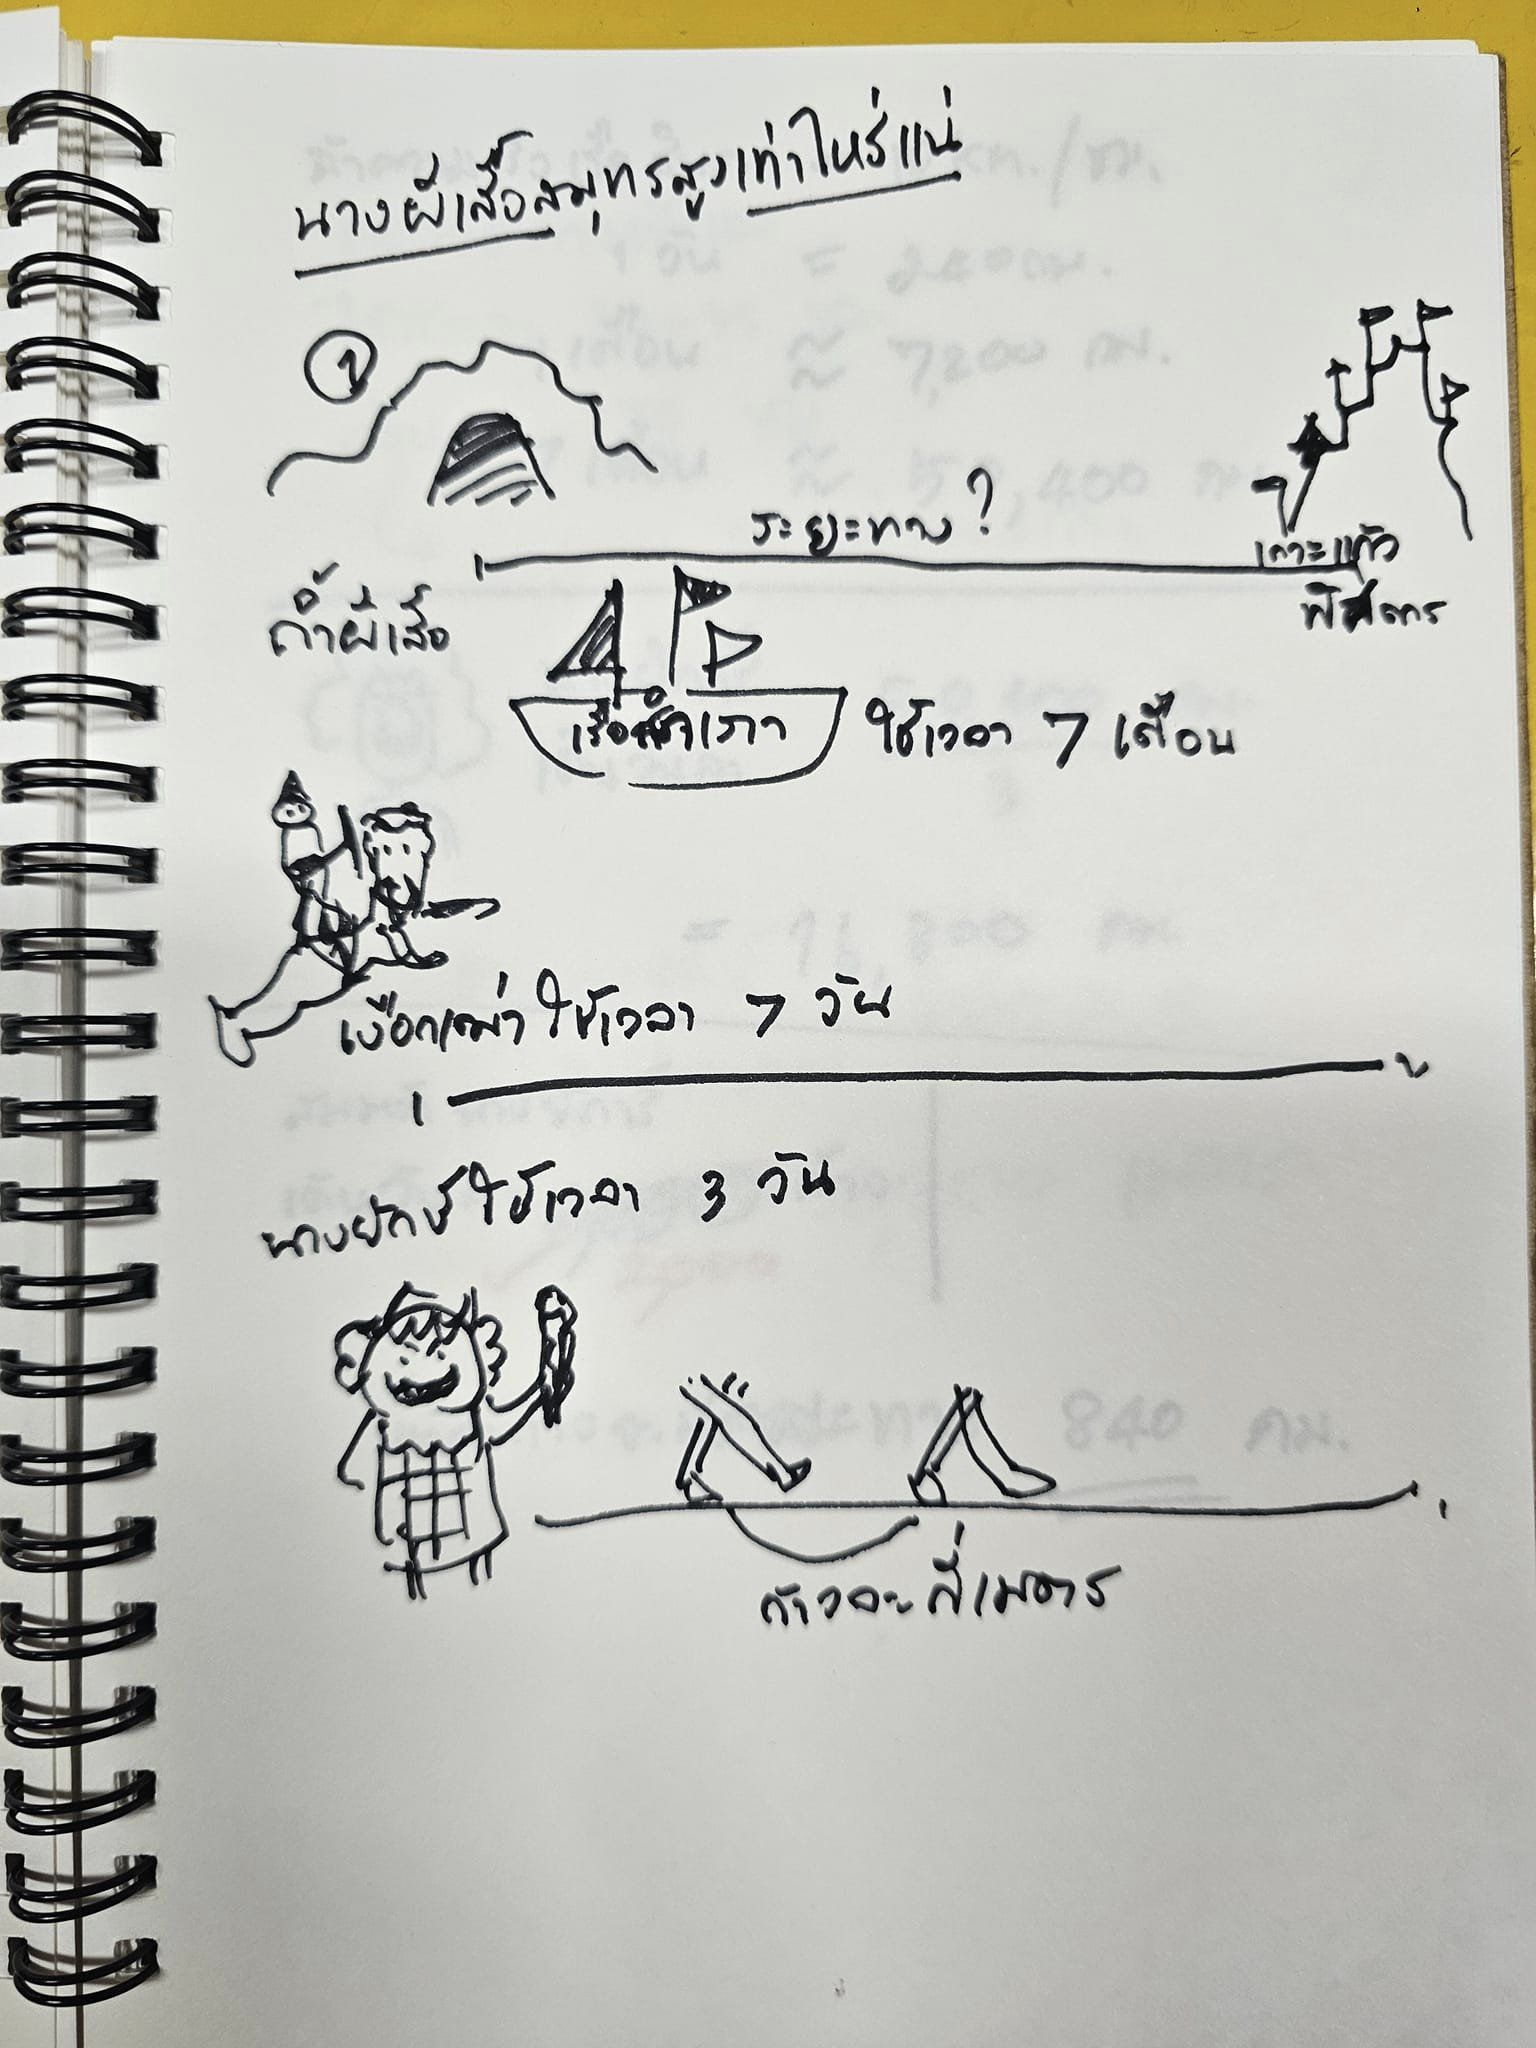 นางผีเสื้อสมุทรสูงเท่าไหร่แน่
1
ระยะทาง?
เกาะแก้ว
พิสดาร
ถ้ำผีเสื้อ
เรือสำเภา
ใช้เวลา 7 เดือน
เงือกเฒ่าใช้เวลา 7 วัน
นางยักษ์ใช้เวลา 3 วัน
ก้าวละกี่เมตร